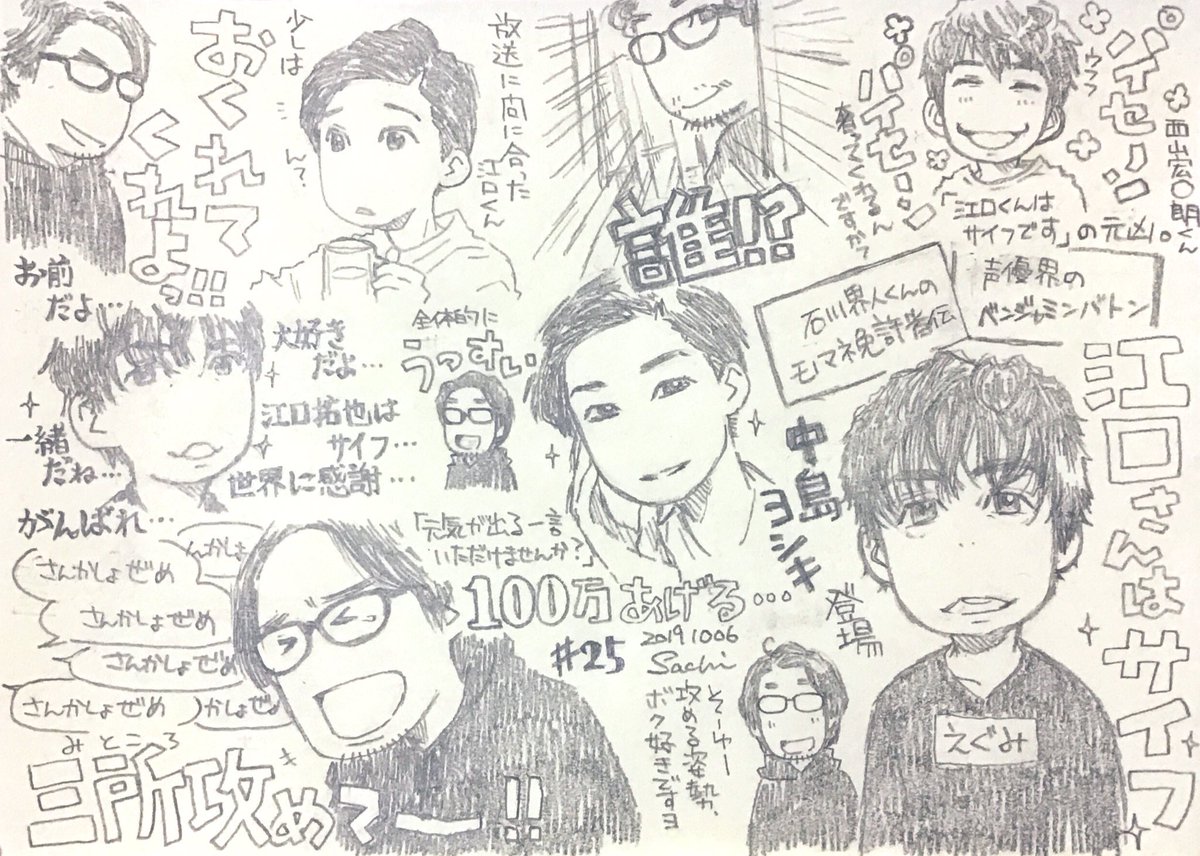 おくれて
くれよっ!!
少しは
放送に間に合った
江口くん
誰!?
パイセーン
パイセーン
奢ってくれるん
ですか?
ウフフ
西山宏〇朗くん
「江口くんは
サイフです」の元凶。
声優界の
ベンジャミンバトン
石川界人くんの
モノマネ免許皆伝
お前
だよ…
大好き
だよ…
一緒
だね…
江口拓也は
サイフ…
世界に感謝…
がんばれ…
全体的に
うっすい
中島
ヨシキ
登場
江口さんはサイフ
えぐみ
「元気が出る一言
いただけませんか?」
100万あげる…
#25
20191006
Sachi
そーゆー
攻める姿勢、
ボク好きですヨ
んかしょ
さんかしょぜめ
さんかしょぜめ
さんかしょぜめ
さんかしょぜめ
かしょぜめ
みところ
三所攻めてー!!